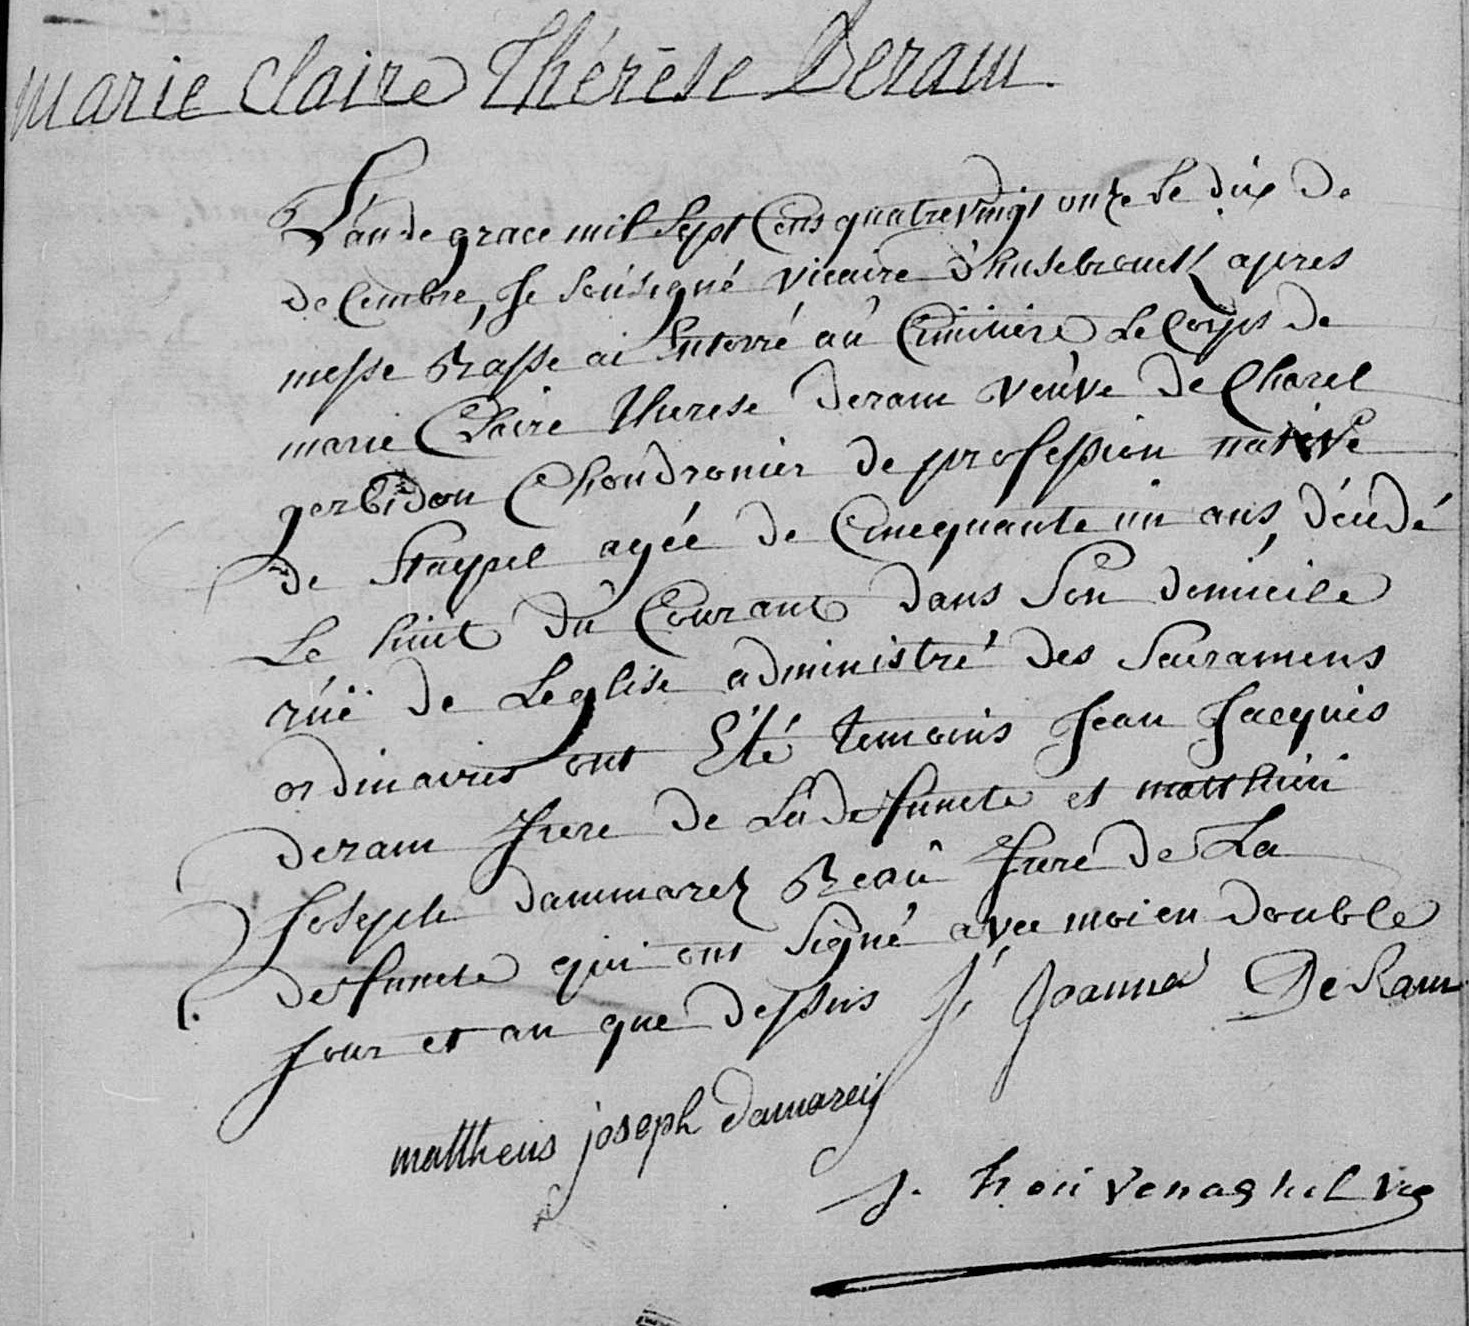 Marie Claire Thérèse Deram
L'an de grace mil Sept Cens quatrevingt onze le dix de
decembre, Je Sousigné vicaire d'hasebrouck apres
messe Basse ai Enterré au Cimitiere le Corps de
marie Claire therese deram veuve de Charel
gerbidon Choudronier de profession native
de Stapel agéé de Cincquante un ans, décédé
Le huit du Courant dans Son domicile
rüe de Leglise administré des Sacramens
ordinaires ont Eté temoins Jean Jacques
deram frere de La defuncte et matthieu
Joseph dammarez Beau frere de La
defuncte qui ont Signé avec moi en double
Jour et an que dessus J. Joanna DeRam
mattheus joseph damarey
J. houvenaghel vic